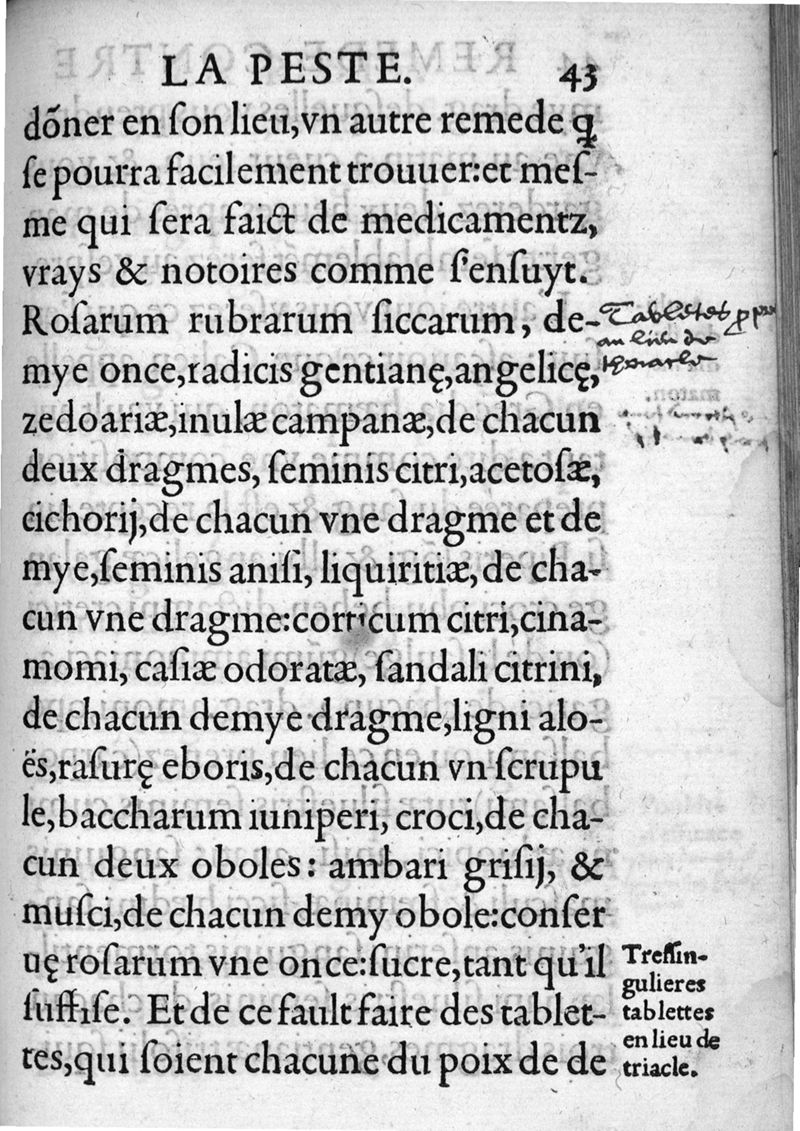 LA PESTE. 43
dõner en ſon lieu,vn autre remede q̃
ſe pourra facilement trouuer:et meſ-
me qui ſera faict de medicamentz,
vrays & notoires comme ſ'enſuyt.
Roſarum rubrarum ſiccarum, de-
mye once,radicis gentianę,angelicę,
zedoariæ,inulæ campanæ,de chacun
deux dragmes, ſeminis citri,acetoſæ,
cichorij,de chacun vne dragme et de
mye,ſeminis aniſi, liquiritiæ, de cha-
cun vne dragme:corticum citri,cina-
momi, caſiæ odoratæ, ſandali citrini,
de chacun demye dragme,ligni alo-
ës,raſurę eboris,de chacun vn ſcrupu
le,baccharum iuniperi, croci,de cha-
cun deux oboles: ambari griſij, &
muſci,de chacun demy obole:conſer
uę roſarum vne once:ſucre,tant qu'il
ſuffiſe. Et de ce fault faire des tablet-
tes,qui ſoient chacune du poix de de
Tablettes
au lieu de
Treſſin-
gulieres
tablettes
en lieu de
triacle.